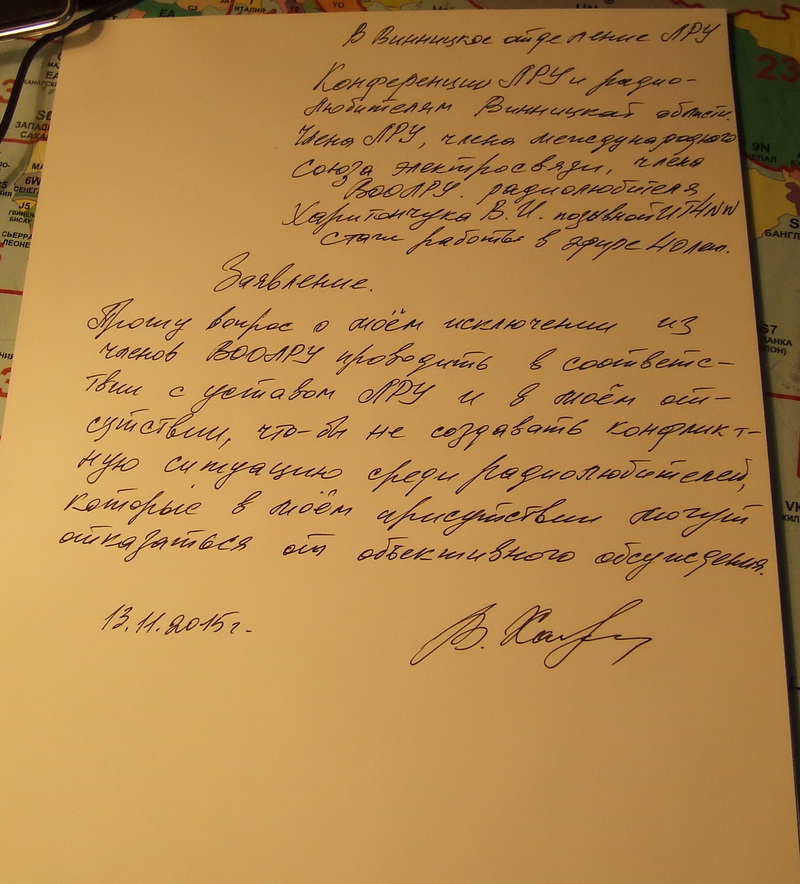 В Винницкое отделение ЛРУ
Конференции ЛРУ и радио-
любителям Винницкой области.
Члена ЛРУ, члена международного
союза электросвязи, члена
ВООЛРУ. радиолюбителя
Харитончука В.И. позывной UT4NW
стаж работы в эфире 40 лет.
Заявление.
Прошу вопрос о моём исключении из
членов ВООЛРУ проводить в соответс-
твии с уставом ЛРУ и в моём от-
сутствии, что-бы не создавать конфликт-
ную ситуацию среди радиолюбителей,
которые в моём присутствии могут
отказаться от объективного обсуждения.
13.11.2015г.
В. Хар
23
9N
НЕПАЛ
S7
6W
J5
ГВИНЕЯ
БИСАУ
СЬЕРРА
ЛЕОНЕ
ЗАПАД
САХА
EA
ИТАЛИЯ
YO
БАНГЛ